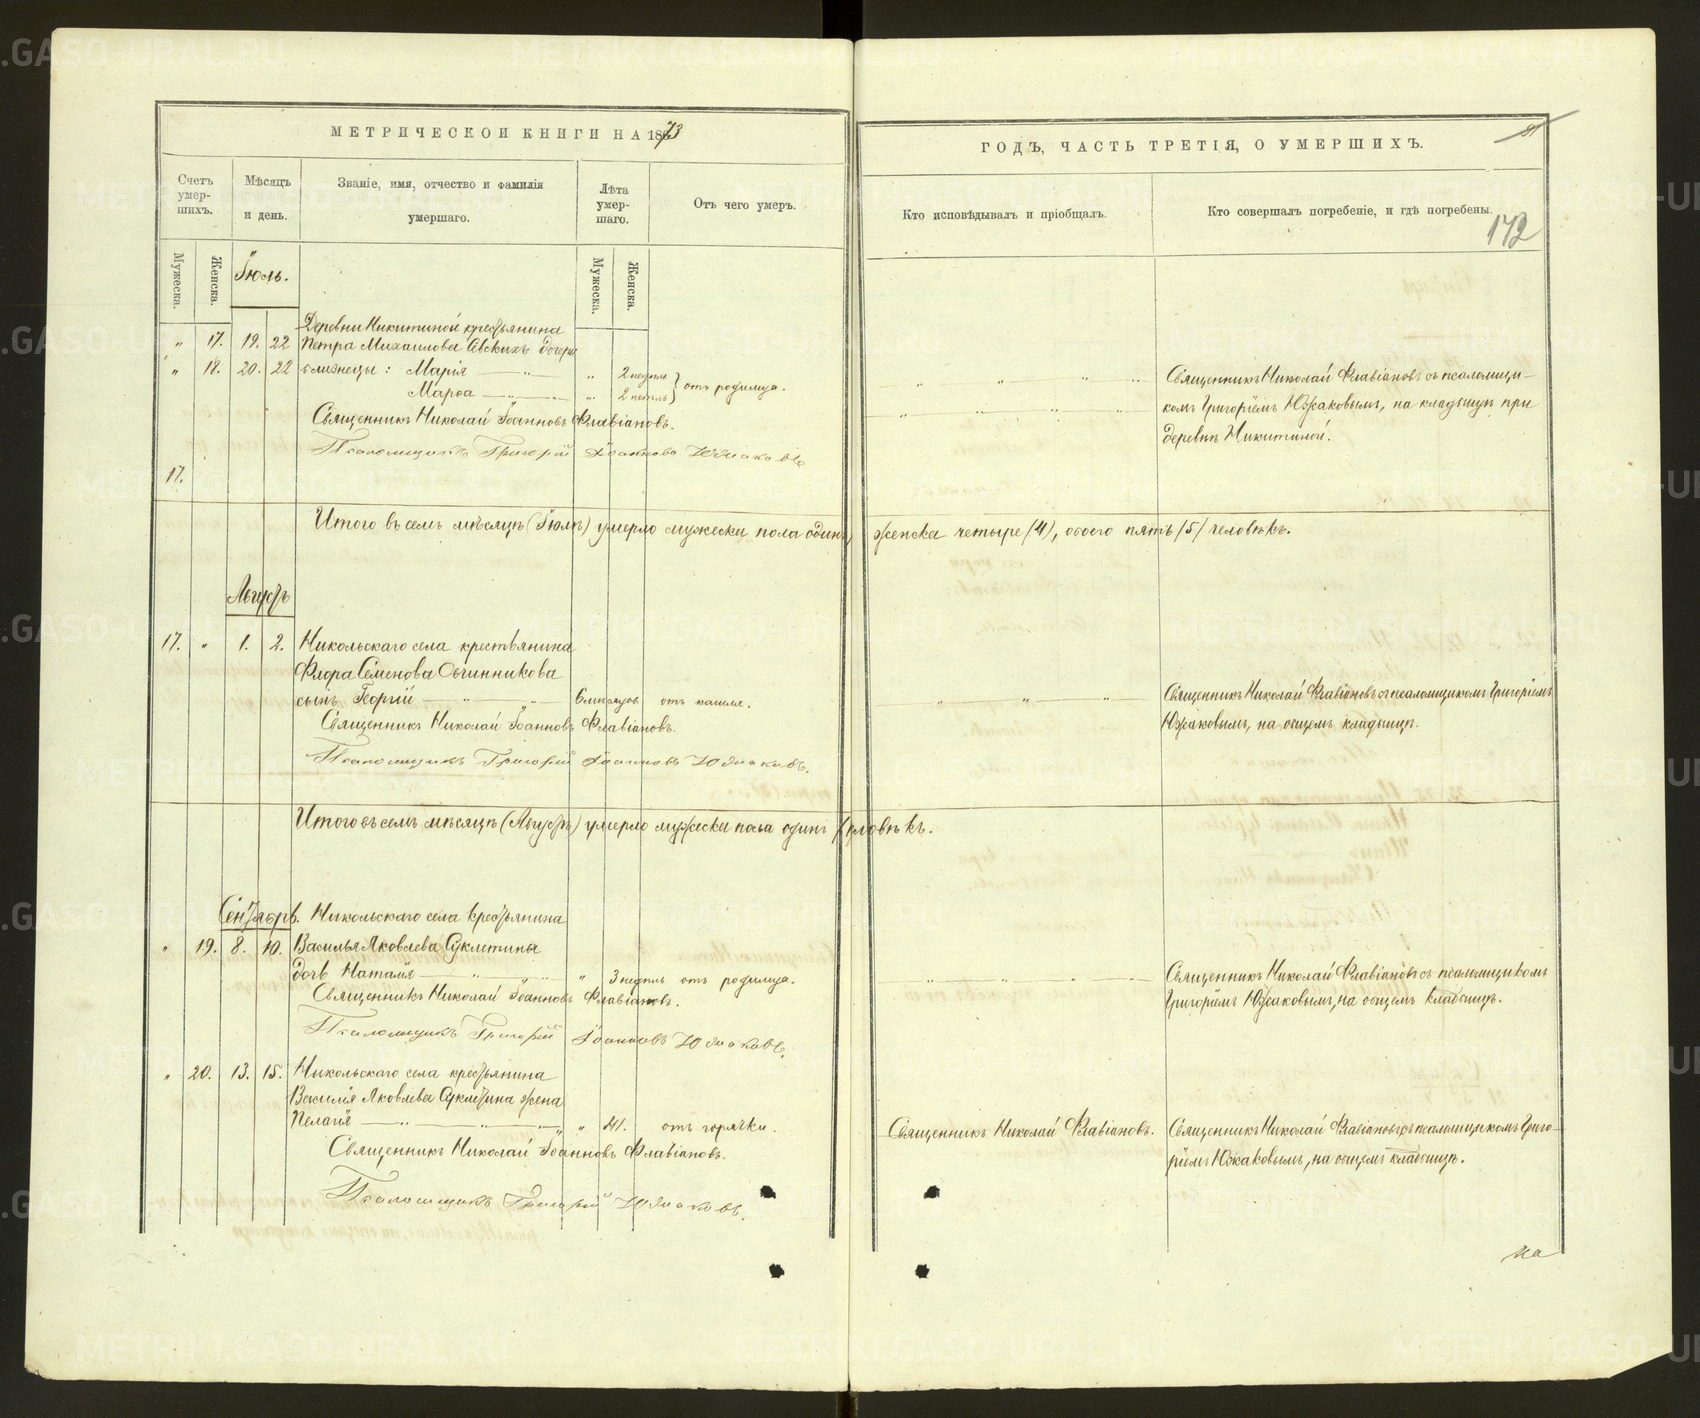 МЕТРИЧЕСКОЙ КНИГИ НА 1873
ГОДЪ, ЧАСТЬ ТРЕТІЯ, О УМЕРШИХЪ.
Счетъ умер-шихъ.
Мѣсяцъ и день.
Званіе, имя, отчество и фамилія умершаго.
Лѣта умер-шаго.
Отъ чего умеръ.
Кто исповѣдывалъ и пріобщалъ.
Кто совершалъ погребеніе, и гдѣ погребены.
172
Мужеска. Женска.
Мужеска. Женска.
Іюль.
Деревни Никитиной крестьянина
" 17. 19. 22 Петра Михаилова дочери
" 18. 20. 22 близнецы: Марія " 2 недѣль
Марѳа " 2 недѣль отъ родимца.
Священникъ Николай Флавіановъ съ псаломщи-
комъ Григоріемъ Южаковымъ, на кладбищѣ при
деревнѣ Никитиной.
Священникъ Николай Іоанновъ Флавіановъ.
Псаломщикъ Григорій Іоанновъ Южаковъ
17.
Итого въ семъ мѣсяцѣ (Іюлѣ) умерло мужеска пола одинъ, женска четыре (4), обоего пять (5) человѣкъ.
Августъ
17. " 1. 2. Никольскаго села крестьянина
Флора Семенова Овчинникова
сынъ Георгій 6 мѣсяцовъ отъ кашля.
Священникъ Николай Флавіановъ съ псаломщикомъ Григоріемъ
Южаковымъ, на общемъ кладбищѣ.
Священникъ Николай Іоанновъ Флавіановъ.
Псаломщикъ Григорій Іоанновъ Южаковъ.
Итого въ семъ мѣсяцѣ (Августѣ) умерло мужеска пола одинъ человѣкъ.
Сентябрь. Никольскаго села крестьянина
" 19. 8. 10. Василья Яковлева
дочь Наталія " 3 недѣль отъ родимца.
Священникъ Николай Флавіановъ съ псаломщикомъ
Григоріемъ Южаковымъ, на общемъ кладбищѣ.
Священникъ Николай Іоанновъ Флавіановъ.
Псаломщикъ Григорій Іоанновъ Южаковъ.
" 20. 13. 15. Никольскаго села крестьянина
Василія Яковлева жена
Пелагія " 41. отъ горячки.
Священникъ Николай Флавіановъ.
Священникъ Николай Флавіановъ съ псаломщикомъ Григо-
ріемъ Южаковымъ, на общемъ кладбищѣ.
Священникъ Николай Іоанновъ Флавіановъ.
Псаломщикъ Григорій Южаковъ.
на
METRIKI.GASO-URAL.RU